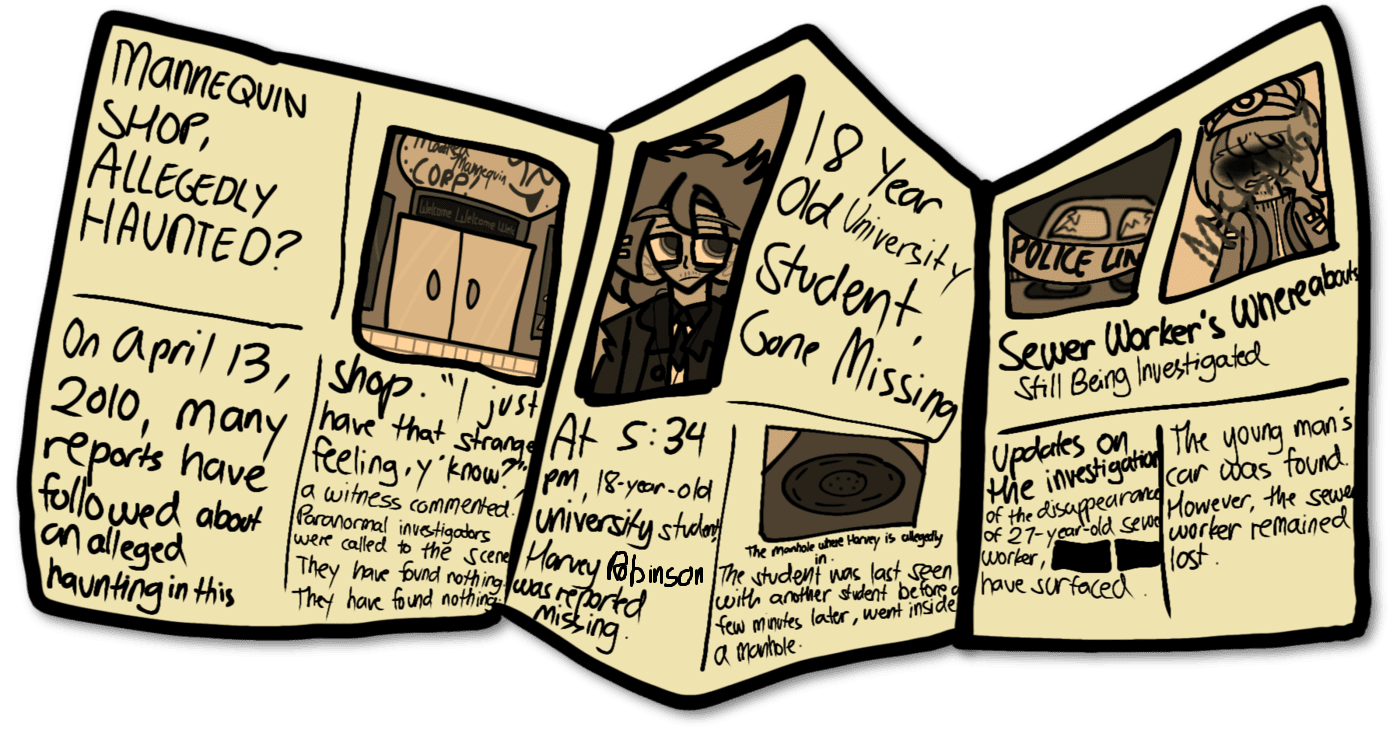 MANNEQUIN
SHOP,
ALLEGEDLY
HAUNTED?
On April 13,
2010, many
reports have
followed about
an alleged
haunting in this
Mannequin
CORP
Welcome Welcome Welc
shop. "I just
have that strange
feeling, y'know?",
a witness commented.
Paranormal investigators
were called to the scene
They have found nothing.
They have found nothing.
18 Year
Old University
Student,
Gone Missing
At 5:34
pm, 18-year-old
university student
Harvey Robinson
was reported
missing.
The manhole where Harvey is allegedly
in.
The student was last seen
with another student before a
few minutes later, went inside
a manhole.
POLICE LIN
Sewer Worker's Whereabouts
Still Being Investigated
Updates on
the investigation
of the disappearance
of 27-year-old sewe
worker,
have surfaced.
The young man's
car was found.
However, the sewer
worker remained
lost.